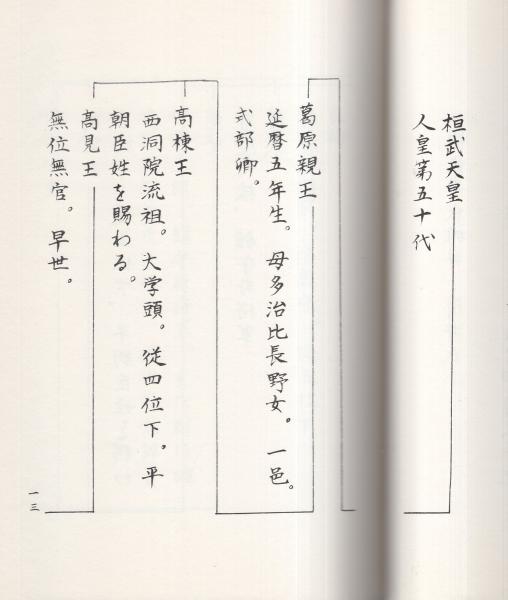 桓武天皇
人皇第五十代
葛原親王
延暦五年生。母多治比長野女。一邑。
式部卿。
高棟王
西洞院流祖。大学頭。従四位下。平
朝臣姓を賜わる。
高見王
無位無官。早世。
一三